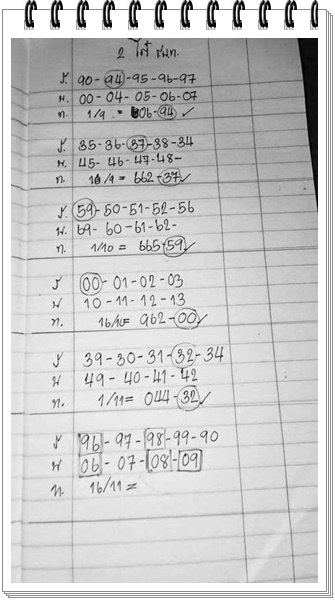 2 ใต้ ชนก.
ร. 90-94-95-96-97
พ. 00-04-05-06-07
ก. 1/9 = 606-94 ✓
ร. 35-36-37-38-34
พ. 45-46-47-48-
ก. 16/9 = 662-37 ✓
ร. 59-50-51-52-56
พ. 69-60-61-62-
ก. 1/10 = 665-59 ✓
ร 00-01-02-03
พ 10-11-12-13
ก. 16/10= 962-00 ✓
ร 39-30-31-32-34
พ 49-40-41-42
ก. 1/11= 044-32 ✓
ร 96-97-98-99-90
พ 06-07-08-09
ก. 16/11=